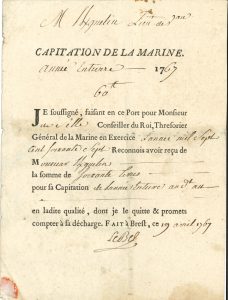 M
CAPITATION DE LA MARINE.
année Entierre 1767
60tt
JE soussigné, faisant en ce Port pour Monsieur
Conseiller du Roi, Thresorier
Général de la Marine en Exercice L'année mil Sept
Cent Soixante Sept Reconnois avoir reçu de
Monsieur
la somme de Soixante Livres
pour sa Capitation de L'année Entierre
en ladite qualité, dont je le quitte & promets
compter à sa décharge. FAIT à Brest, ce 19 avril 1767